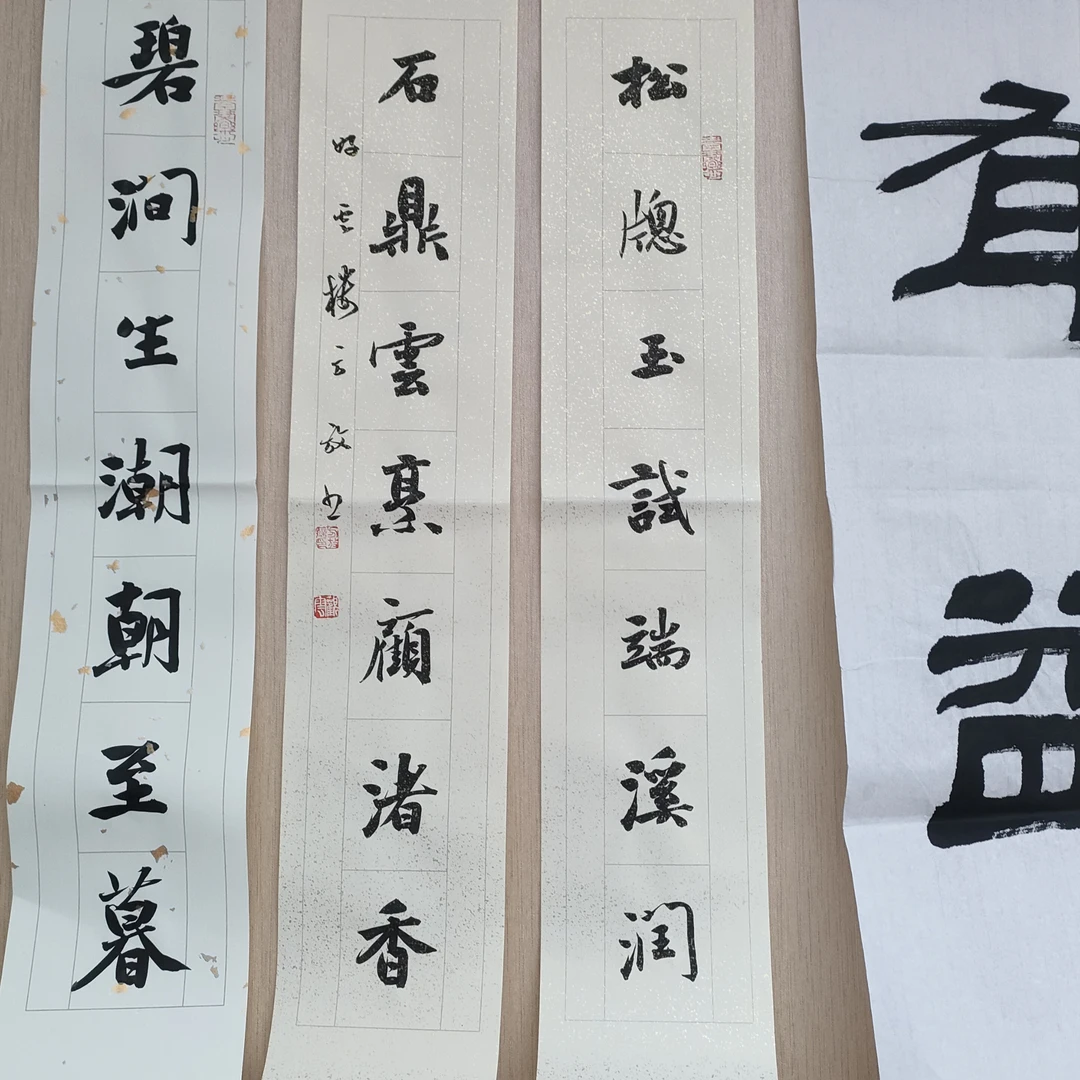 有益
松牕玉試端溪潤
石鼎雲烹顧渚香
好雲樓
碧澗生潮朝至暮